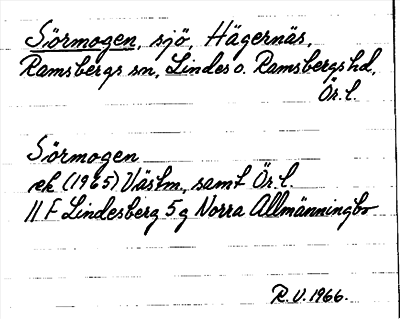 Sörmogen, sjö, Hägernäs,
Ramsbergs sn, Lindes o. Ramsbergs hd,
Ör. l.
Sörmogen
ek (1965) Västm. samt Ör. l.
11 F Lindesberg 5 g Norra Allmänningbo
R.V. 1966.